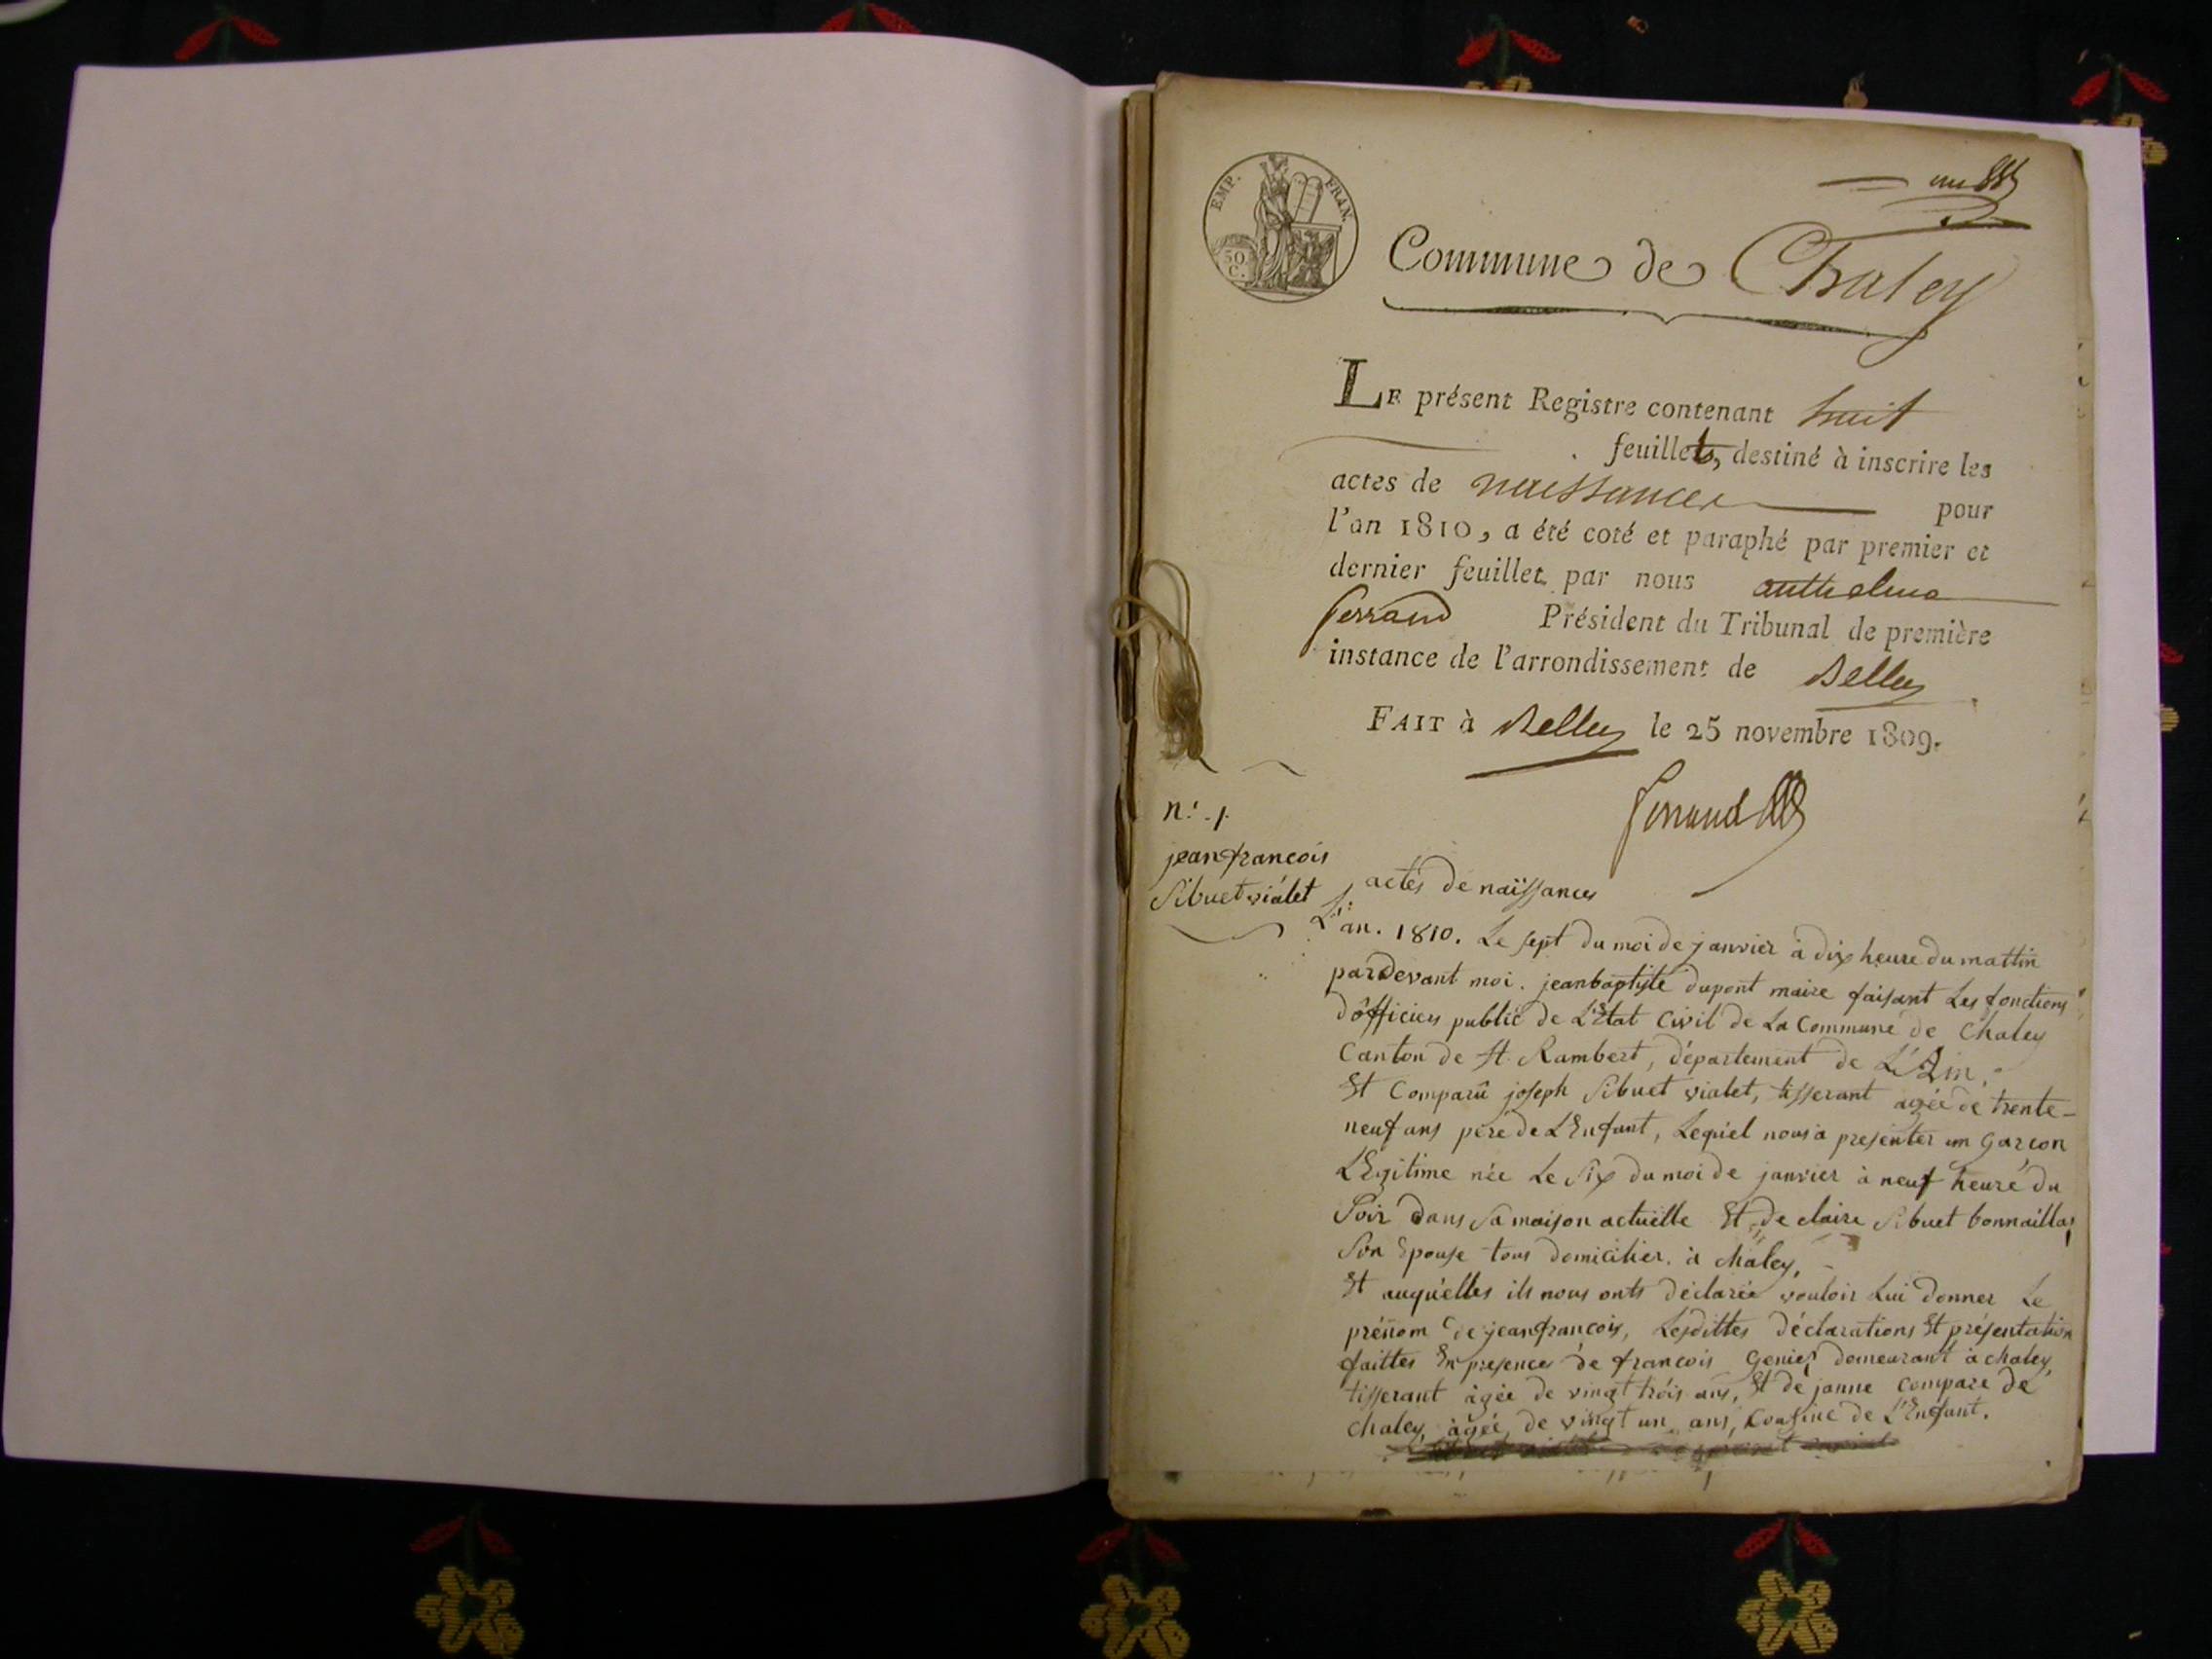 EMP. FRAN.
30. C.
Commune de Chaley
LE présent Registre contenant huit
feuillets, destiné à inscrire les
actes de naissances pour
l'an 1810, a été coté et paraphé par premier et
dernier feuillet par nous anthelme
ferrand Président du Tribunal de première
instance de l'arrondissement de Belley
FAIT à Belley le 25 novembre 1809.
ferrand
n.: 1.
jeanfrancois
Sibuet vialet
actes de naissances
L'an. 1810. Le sept du moi de janvier à dix heure du mattin
pardevant moi. jeanbaptiste dupont maire faisant Les fonctions
d'officier public de L'Etat Civil de La Commune de Chaley
Canton de St. Rambert, département de L'Ain.
Et Comparû joseph Sibuet vialet, tisserant agée de trente-
neuf ans père de L'Enfant, Lequel nous a presenter un garçon
LEgitime née Le Six du moi de janvier à neuf heure du
Soir dans Sa maison actuelle Et de claire Sibuet bonnaillas
Son Epouse tous domicilier. à chaley.
Et auquelles ils nous onts déclarée vouloir Lui donner Le
prénom de jeanfrançois, Lesdittes déclarations Et présentation
faittes En presence de francois Genies demeurant à chaley,
tisserant âgée de vingt trois ans, Et de janne compare de
chaley, âgée, de vingt un ans, Cousine de L'Enfant.